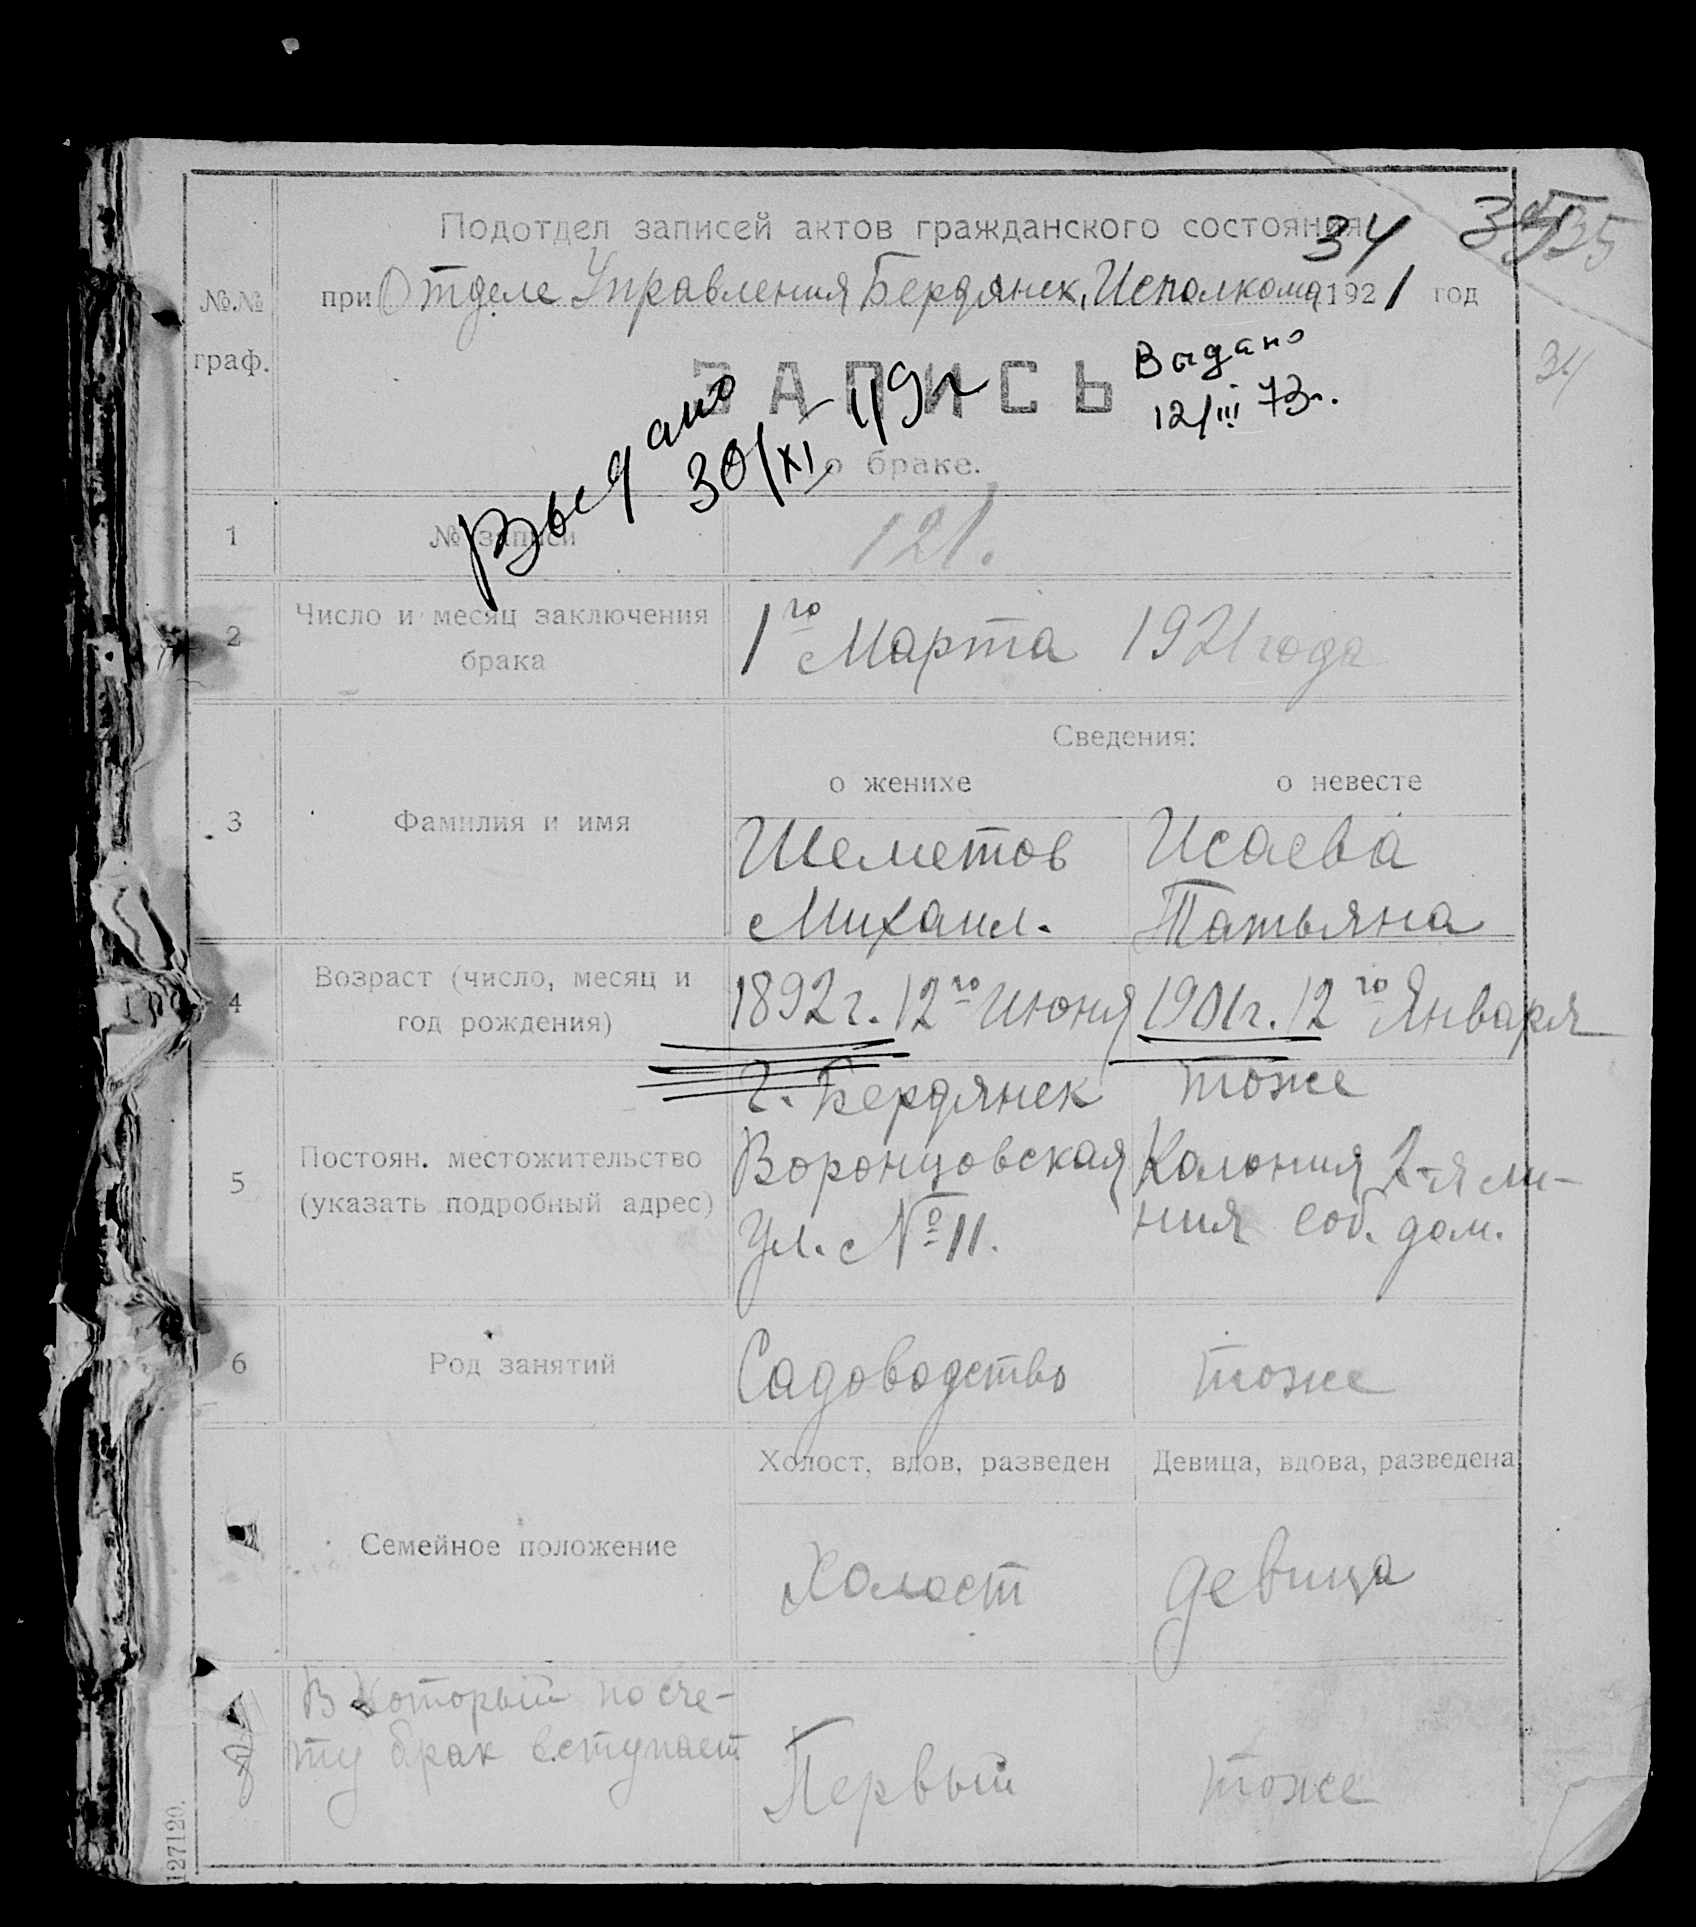 Подотдел записей актов гражданского состояния
34
35
№.№
граф.
при Отделе Управления Бердянск. Исполкома 1921 год
34
ЗАПИСЬ
Выдано
12/III 73г.
Выдано
30/XI
о браке.
1 № записи 121.
2 Число и месяц заключения брака 1го Марта 1921 года
Сведения:
о женихе о невесте
3 Фамилия и имя Шеметов Исаева
Михаил. Татьяна
4 Возраст (число, месяц и
год рождения) 1892г. 12го Июня 1901г. 12го Января
г. Бердянск тоже
5 Постоян. местожительство Воронцовская Колония 2-я ли-
(указать подробный адрес) ул. № 11. ния соб. дом.
6 Род занятий Садоводство тоже
Холост, вдов, разведен Девица, вдова, разведена
Семейное положение Холост девица
8 В который по сче-
ту брак вступает Первый тоже
127120.